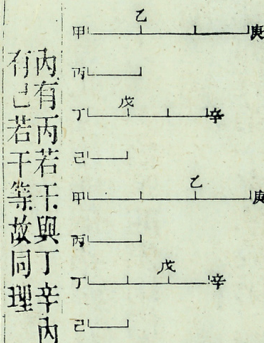 乙
甲 庚
丙
戊
丁 辛
己
乙
甲 庚
丙
戊
丁 辛
己
內有丙若干與丁辛內
有己若干等故同理